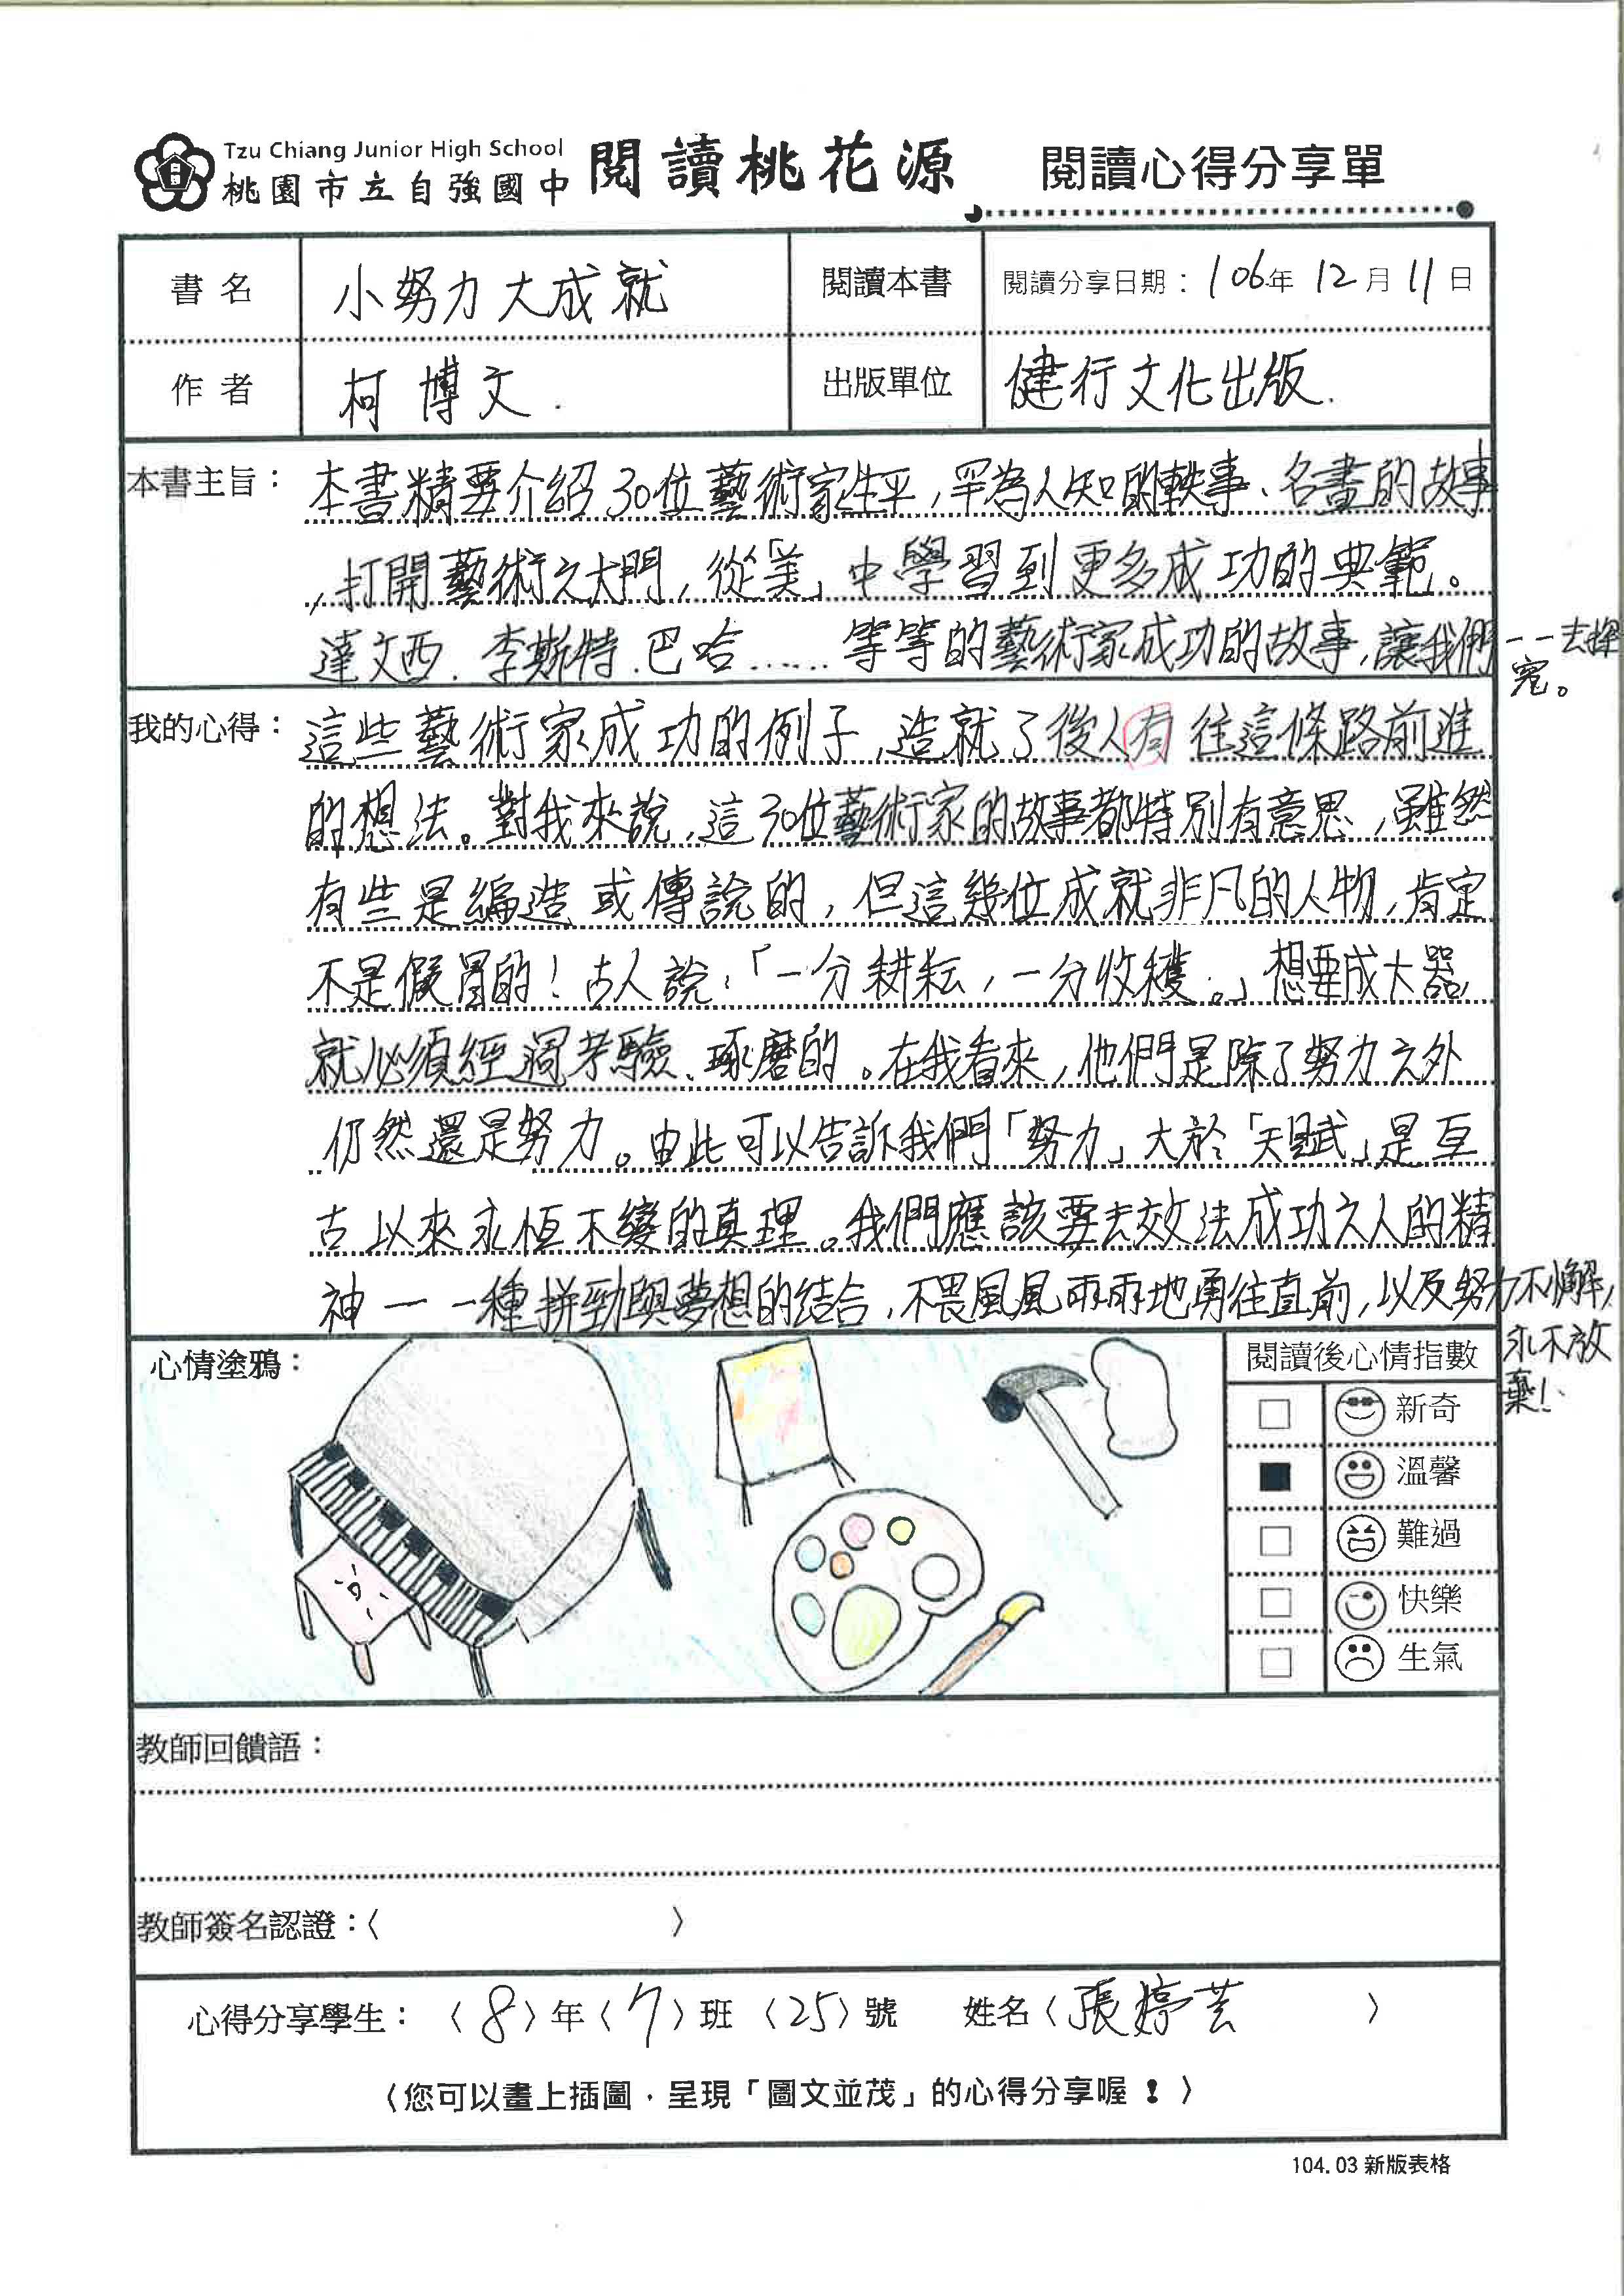 Tzu Chiang Junior High School
桃園市立自強國中 閱讀桃花源 閱讀心得分享單
書名 小努力大成就 閱讀本書 閱讀分享日期：106年12月11日
作者 柯博文. 出版單位 健行文化出版.
本書主旨：本書精要介紹30位藝術家生平,罕為人知的軼事、名畫的故事
,打開藝術之大門,從「美」中學習到更多成功的典範。
達文西.李斯特.巴哈......等等的藝術家成功的故事,讓我們一一去探
究。
我的心得：這些藝術家成功的例子,造就了後人有往這條路前進
的想法。對我來說,這30位藝術家的故事都特別有意思,雖然
有些是編造或傳說的,但這幾位成就非凡的人物,肯定
不是假冒的！古人說:「一分耕耘,一分收穫。」想要成大器,
就必須經過考驗、琢磨的。在我看來,他們是除了努力之外
仍然還是努力。由此可以告訴我們「努力」大於「天賦」是亙
古以來永恆不變的真理。我們應該要去效法成功之人的精
神－－種拼勁與夢想的結合,不畏風風雨雨地勇往直前,以及努力不懈,
永不放
棄!
心情塗鴉：
閱讀後心情指數
□ 新奇
■ 溫馨
□ 難過
□ 快樂
□ 生氣
教師回饋語：
教師簽名認證：〈 〉
心得分享學生：〈8〉年〈7〉班〈25〉號 姓名〈張婷芸 〉
〈您可以畫上插圖，呈現「圖文並茂」的心得分享喔！〉
104.03新版表格